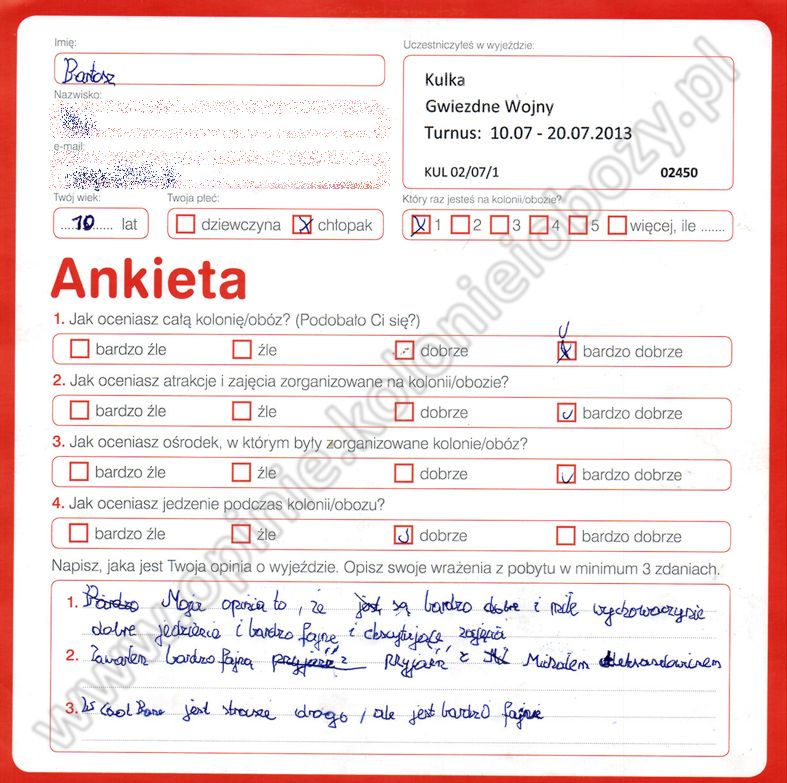 Imię:
Uczestniczyłeś w wyjeździe:
Bartosz
Kulka
Gwiezdne Wojny
Turnus: 10.07 - 20.07.2013
KUL 02/07/1 02450
Nazwisko:
e-mail:
Twój wiek: Twoja płeć: Który raz jesteś na kolonii/obozie?
10 lat dziewczyna chłopak 1 2 3 4 5 więcej, ile .......
Ankieta
1. Jak oceniasz całą kolonię/obóz? (Podobało Ci się?)
bardzo źle źle dobrze bardzo dobrze
2. Jak oceniasz atrakcje i zajęcia zorganizowane na kolonii/obozie?
bardzo źle źle dobrze bardzo dobrze
3. Jak oceniasz ośrodek, w którym były zorganizowane kolonie/obóz?
bardzo źle źle dobrze bardzo dobrze
4. Jak oceniasz jedzenie podczas kolonii/obozu?
bardzo źle źle dobrze bardzo dobrze
Napisz, jaka jest Twoja opinia o wyjeździe. Opisz swoje wrażenia z pobytu w minimum 3 zdaniach.
1. Bardzo Moja opinia to, że jest są bardzo dobre i miłe
dobre jedzienie i bardzo fajne i ekscytujące zajęcia
2. Zawarłem bardzo fajną przyjaźń z Michałem
3. jest strasznie drogo, ale jest bardzo fajnie
www.opinie.kolonieiobozy.pl